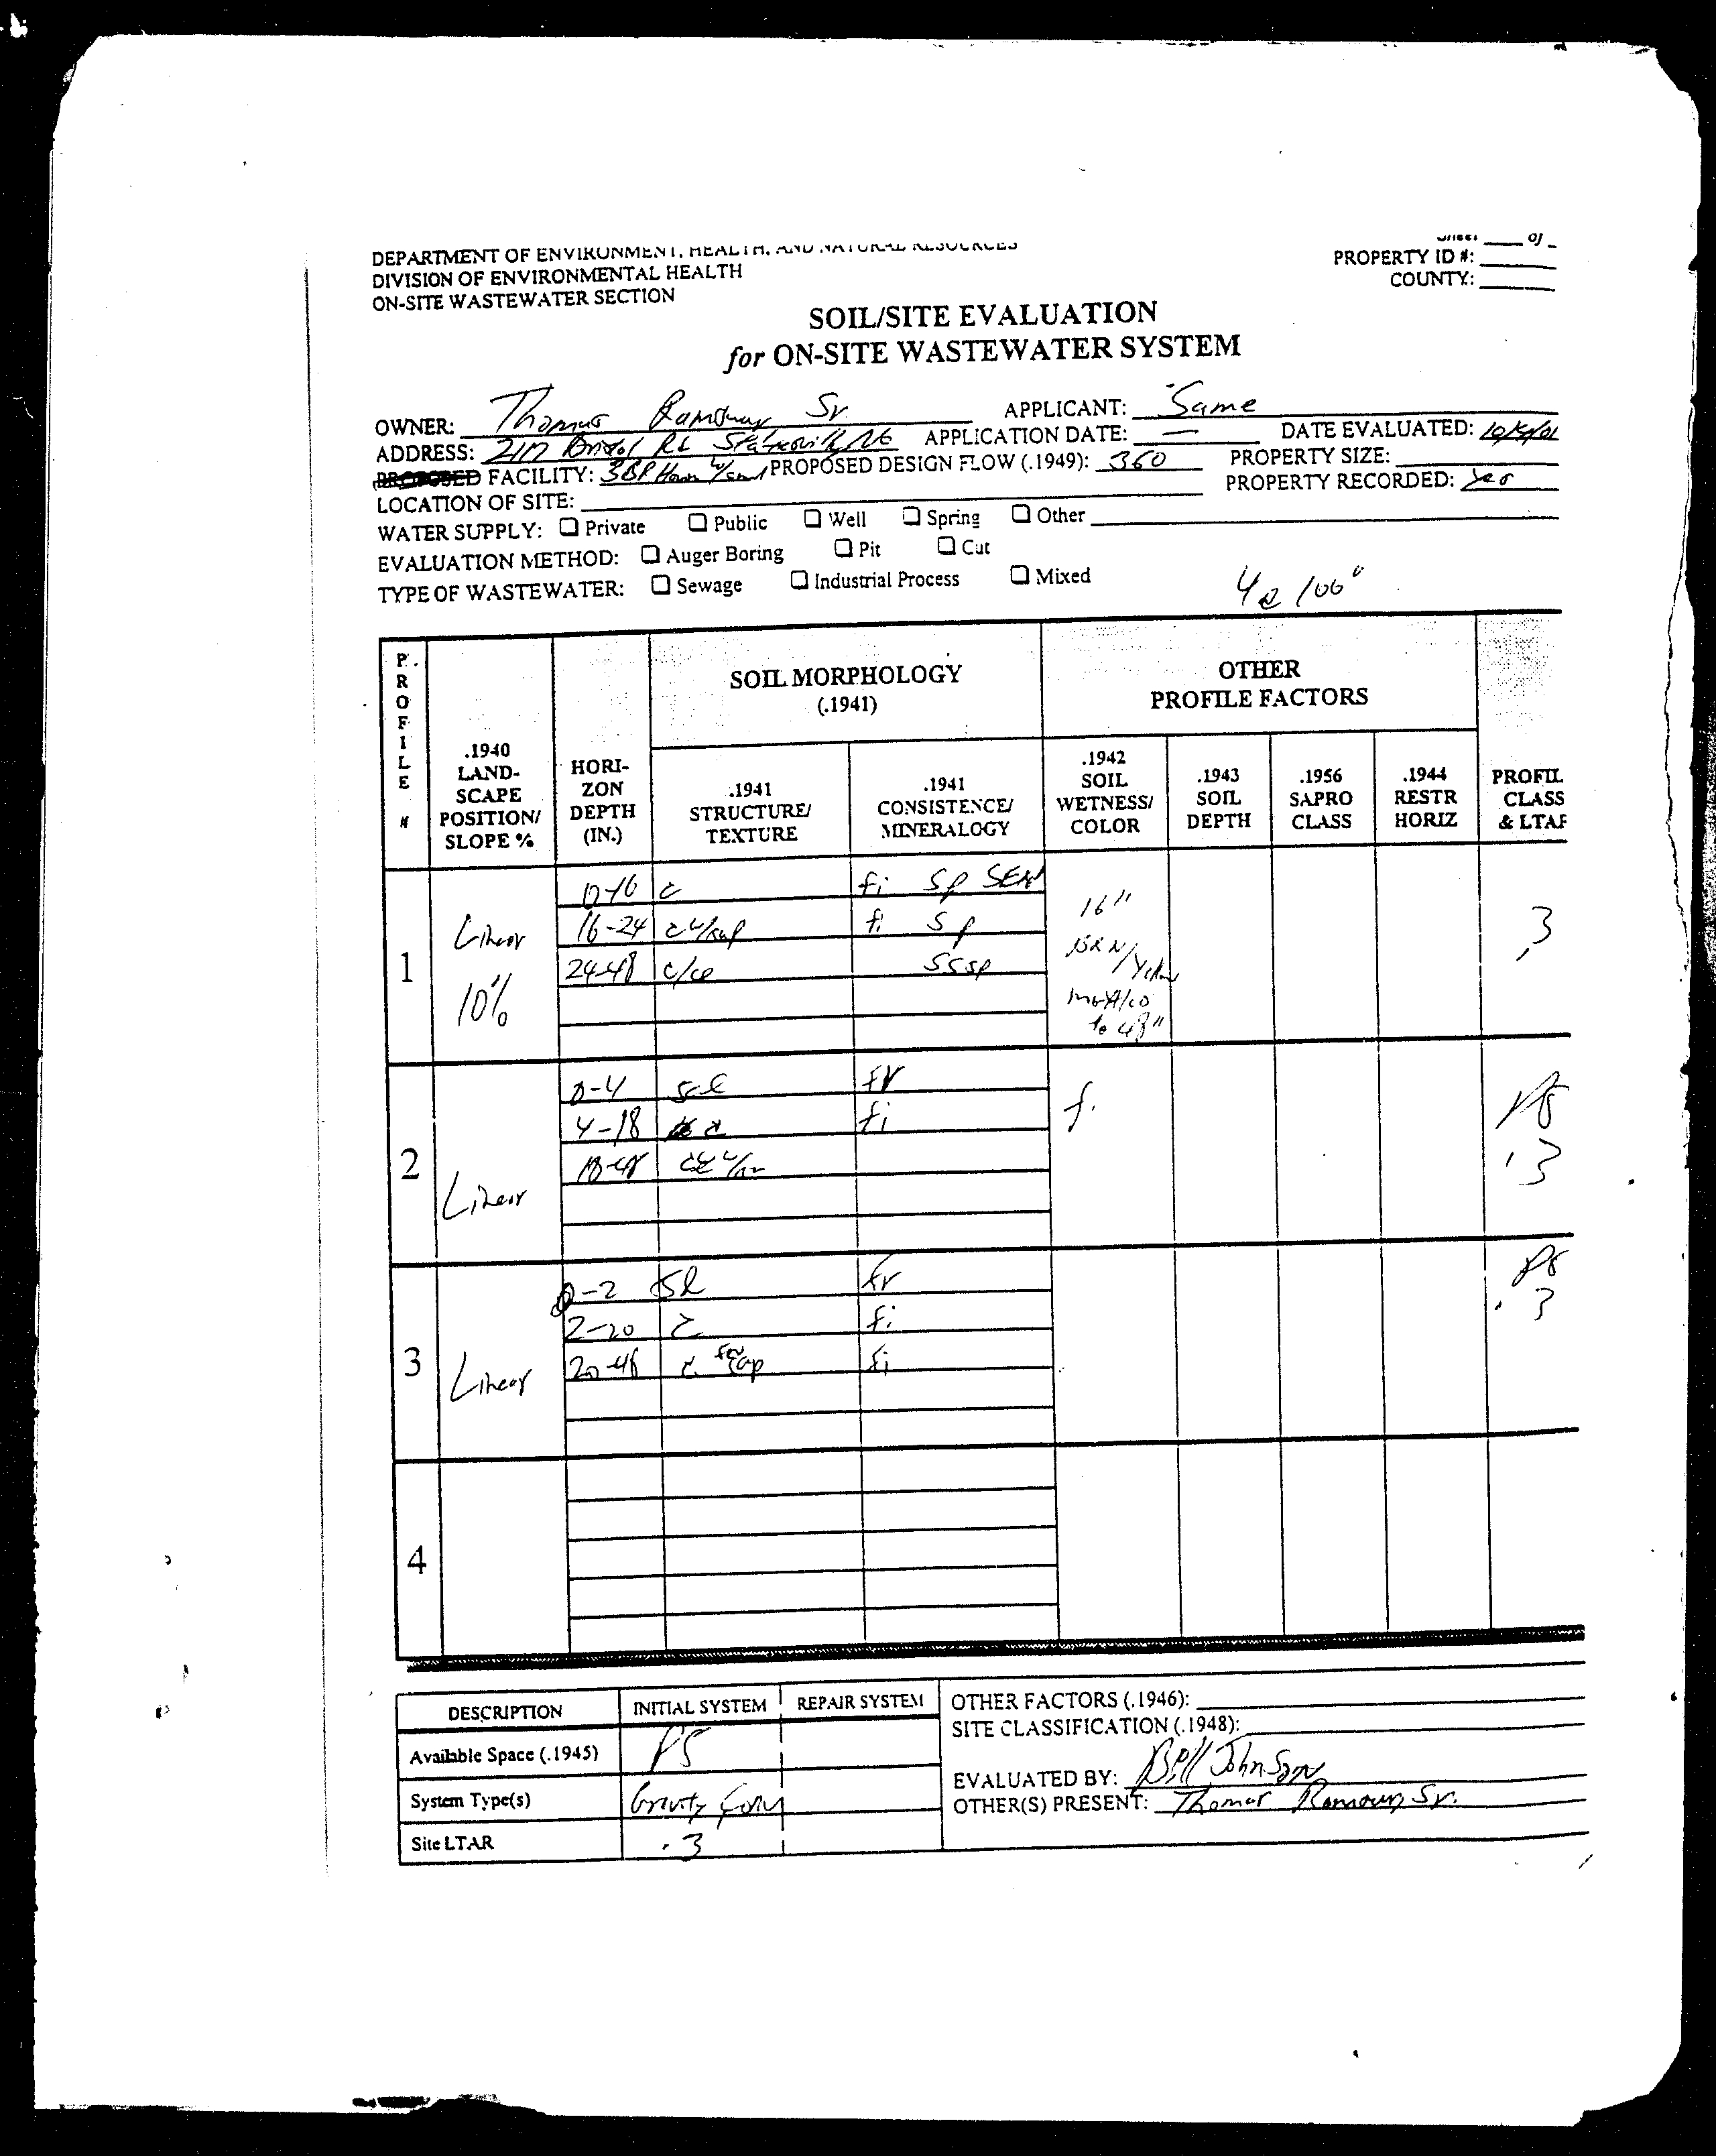 DEPARTMENT OF ENVIRONMENT, HEALTH, AND NATURAL RESOURCES
DIVISION OF ENVIRONMENTAL HEALTH
ON-SITE WASTEWATER SECTION
Sheet ____ of _
PROPERTY ID #:
COUNTY:
SOIL/SITE EVALUATION
for ON-SITE WASTEWATER SYSTEM
OWNER: Thomas Sr. APPLICANT: Same
ADDRESS: Bristol Rd Statesville NC APPLICATION DATE: — DATE EVALUATED:
PROPOSED FACILITY: PROPOSED DESIGN FLOW (.1949): 360 PROPERTY SIZE:
LOCATION OF SITE: PROPERTY RECORDED: Yes
WATER SUPPLY: ☐ Private ☐ Public ☐ Well ☐ Spring ☐ Other
EVALUATION METHOD: ☐ Auger Boring ☐ Pit ☐ Cut
TYPE OF WASTEWATER: ☐ Sewage ☐ Industrial Process ☐ Mixed
4 @ 100'
PROFILE #
.1940 LAND-SCAPE POSITION/ SLOPE %
HORI-ZON DEPTH (IN.)
SOIL MORPHOLOGY
(.1941)
OTHER
PROFILE FACTORS
.1941 STRUCTURE/ TEXTURE
.1941 CONSISTENCE/ MINERALOGY
.1942 SOIL WETNESS/ COLOR
.1943 SOIL DEPTH
.1956 SAPRO CLASS
.1944 RESTR HORIZ
PROFIL CLASS & LTAR
1 Linear 10%
0-16 c fi sp
16-24 fi sp
24-48 sssp
16"
to 48"
.3
2 Linear
0-4 scl fr
4-18 c fi
18-48
fi
PS
.3
3 Linear
0-2 sl fr
2-20 c fi
20-48 c fi
PS
.3
4
DESCRIPTION INITIAL SYSTEM REPAIR SYSTEM
Available Space (.1945) PS
System Type(s) Gravity Conv
Site LTAR .3
OTHER FACTORS (.1946):
SITE CLASSIFICATION (.1948):
EVALUATED BY: Bill Johnson
OTHER(S) PRESENT: Thomas Sr.